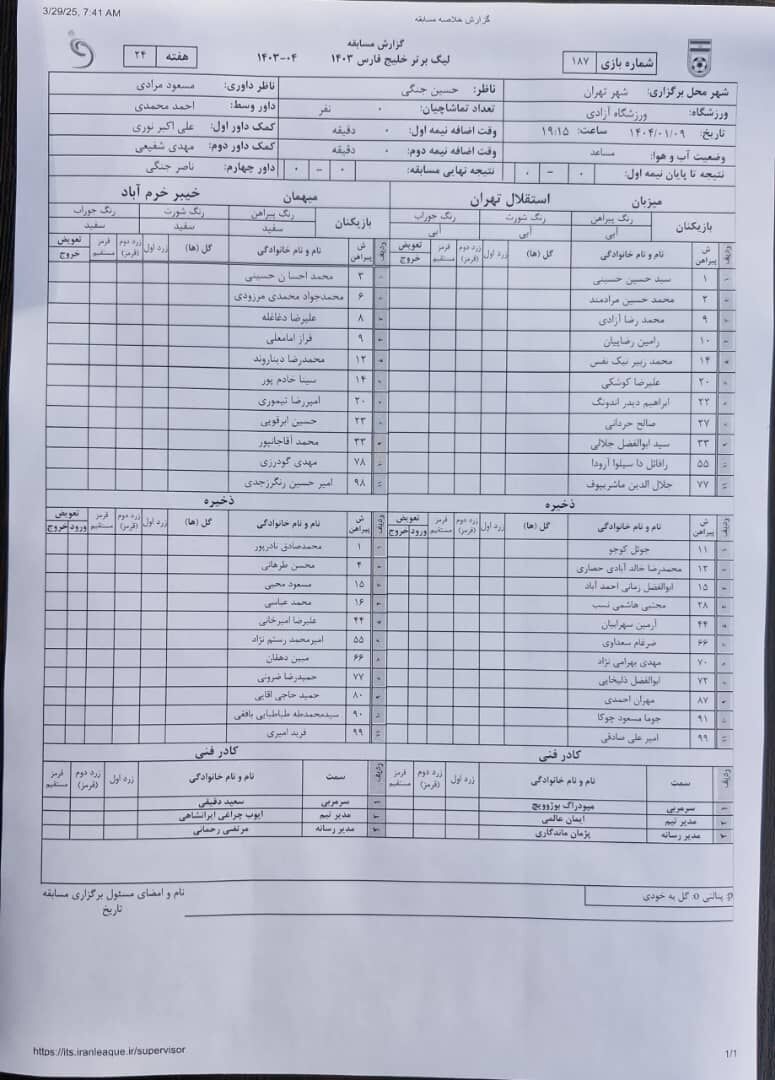 3/29/25, 7:41 AM
گزارش خلاصه مسابقه
گزارش مسابقه
شماره بازی ۱۸۷
لیگ برتر خلیج فارس ۱۴۰۳ ۱۴۰۳-۰۴
هفته ۲۴
شهر محل برگزاری: شهر تهران ناظر: حسین جنگی ناظر داوری: مسعود مرادی
ورزشگاه: ورزشگاه آزادی تعداد تماشاچیان: ۰ نفر داور وسط: احمد محمدی
تاریخ: ۱۴۰۴/۰۱/۰۹ ساعت: ۱۹:۱۵ وقت اضافه نیمه اول: ۰ دقیقه کمک داور اول: علی اکبر نوری
وضعیت آب و هوا: مساعد وقت اضافه نیمه دوم: ۰ دقیقه کمک داور دوم: مهدی شفیعی
نتیجه تا پایان نیمه اول: ۰ - ۰ نتیجه نهایی مسابقه: ۰ - ۰ داور چهارم: ناصر جنگی
میزبان استقلال تهران
بازیکنان رنگ پیراهن رنگ شورت رنگ جوراب
آبی آبی آبی
ردیف ش پیراهن نام و نام خانوادگی گل (ها) زرد اول زرد دوم (قرمز) قرمز مستقیم تعویض خروج
۱ سید حسین حسینی
۲ محمد حسین مرادمند
۹ محمد رضا آزادی
۱۰ رامین رضاییان
۱۴ محمد زبیر نیک نفس
۲۰ علیرضا کوشکی
۲۲ ابراهیم دیدر اندونگ
۲۷ صالح حردانی
۳۳ سید ابوالفضل جلالی
۵۵ رافائل دا سیلوا آرودا
۷۷ جلال الدین ماشریپوف
ذخیره
ردیف ش پیراهن نام و نام خانوادگی گل (ها) زرد اول زرد دوم (قرمز) قرمز مستقیم تعویض ورود خروج
۱۱ جوئل کوجو
۱۲ محمدرضا خالد آبادی حصاری
۱۵ ابوالفضل زمانی احمد آباد
۲۸ مجتبی هاشمی نسب
۴۴ آرمین سهرابیان
۶۶ ضرغام سعداوی
۷۰ مهدی بهرامی نژاد
۷۲ ابوالفضل ذلیخایی
۸۷ مهران احمدی
۹۱ جوما مسعود چوکا
۹۹ امیر علی صادقی
کادر فنی
ردیف سمت نام و نام خانوادگی زرد اول زرد دوم (قرمز) قرمز مستقیم
۱ سرمربی میودراگ بوژوویچ
۲ مدیر تیم ایمان عالمی
۳ مدیر رسانه پژمان ماندگاری
میهمان خیبر خرم آباد
بازیکنان رنگ پیراهن رنگ شورت رنگ جوراب
سفید سفید سفید
ردیف ش پیراهن نام و نام خانوادگی گل (ها) زرد اول زرد دوم (قرمز) قرمز مستقیم تعویض خروج
۳ محمد احسان حسینی
۶ محمدجواد محمدی مرزودی
۸ علیرضا دغاغله
۹ فراز امامعلی
۱۲ محمدرضا دیناروند
۱۴ سینا خادم پور
۲۰ امیررضا تیموری
۲۳ حسین ابرقویی
۳۳ محمد آقاجانپور
۷۸ مهدی گودرزی
۹۸ امیر حسین رنگرزجدی
ذخیره
ردیف ش پیراهن نام و نام خانوادگی گل (ها) زرد اول زرد دوم (قرمز) قرمز مستقیم تعویض ورود خروج
۱ محمدصادق نادرپور
۴ محسن طرهانی
۱۵ مسعود محبی
۱۶ محمد عباسی
۴۴ علیرضا امیرخانی
۵۵ امیرمحمد رستم نژاد
۶۶ مبین دهقان
۷۷ حمیدرضا ضرونی
۸۰ حمید حاجی اقایی
۹۰ سیدمحمدطه طباطبایی بافقی
۹۹ فرید امیری
کادر فنی
ردیف سمت نام و نام خانوادگی زرد اول زرد دوم (قرمز) قرمز مستقیم
۱ سرمربی سعید دقیقی
۲ مدیر تیم ایوب چراغی ایرانشاهی
۳ مدیر رسانه مرتضی رحمانی
p: پنالتی o: گل به خودی
نام و امضای مسئول برگزاری مسابقه
تاریخ
https://its.iranleague.ir/supervisor
1/1